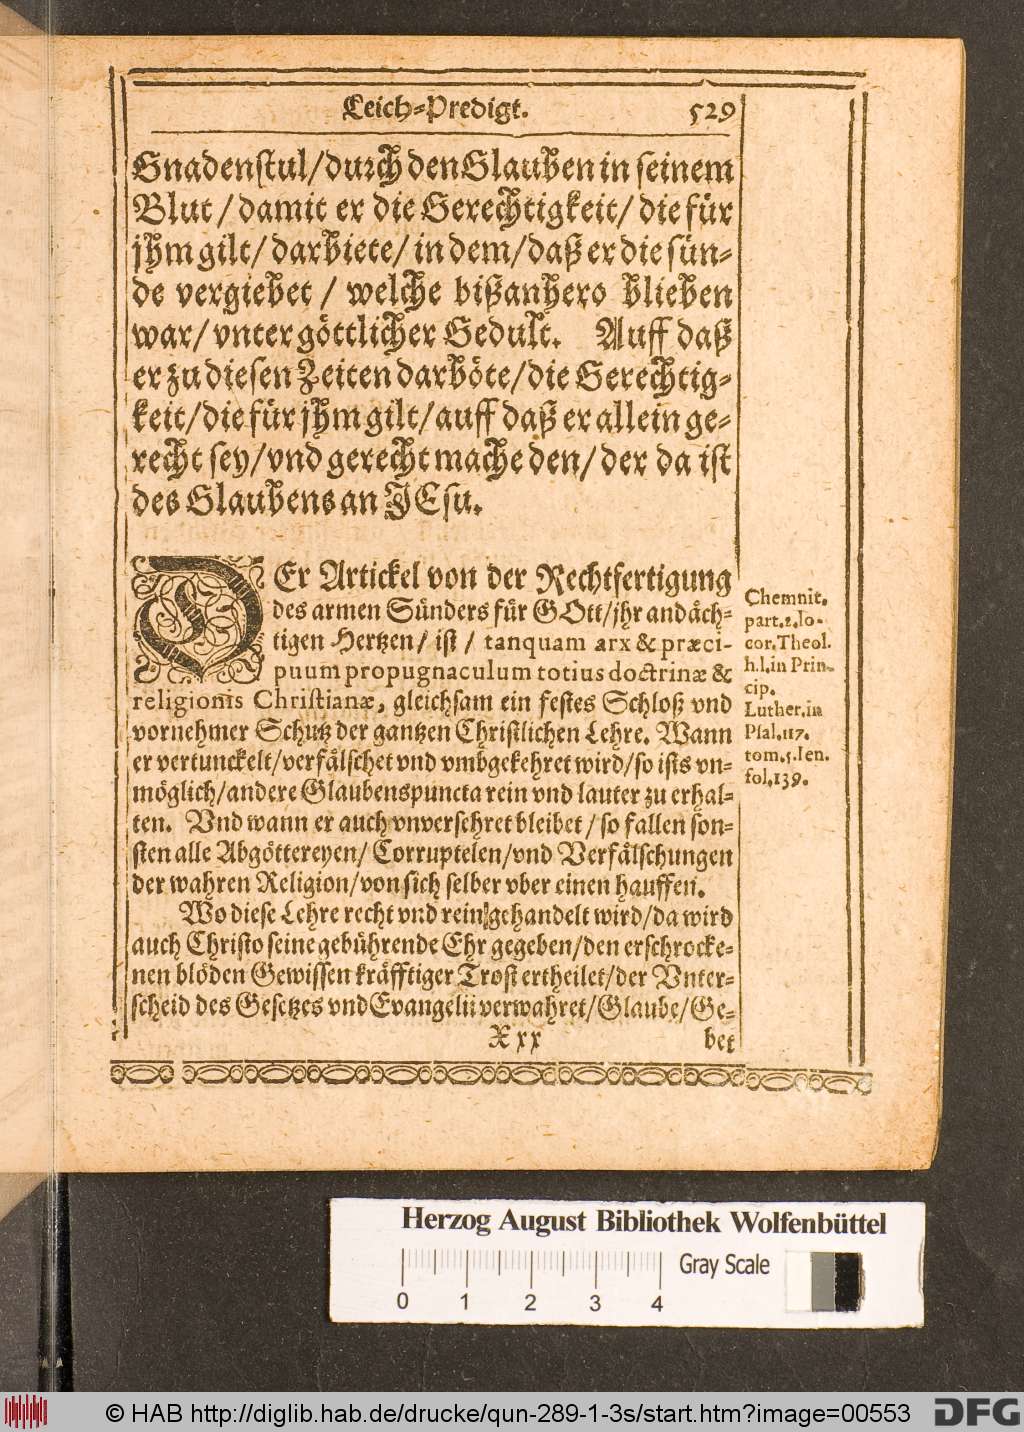 Leich-Predigt. 529
Gnadenstul/durch den Glauben in seinem
Blut/damit er die Gerechtigkeit/die für
jhm gilt/darbiete/in dem/daß er die sün-
de vergiebet/welche bißanhero blieben
war/vnter göttlicher Gedult. Auff daß
er zu diesen Zeiten darböte/die Gerechtig-
keit/die für jhm gilt/auff daß er allein ge-
recht sey/vnd gerecht mache den/der da ist
des Glaubens an JEsu.
DEr Artickel von der Rechtfertigung
des armen Sünders für GOtt/jhr andäch-
tigen Hertzen/ist/tanquam arx & præci-
puum propugnaculum totius doctrinæ &
religionis Christianæ, gleichsam ein festes Schloß vnd
vornehmer Schutz der gantzen Christlichen Lehre. Wann
er vertunckelt/verfälschet vnd vmbgekehret wird/so ists vn-
möglich/andere Glaubenspuncta rein vnd lauter zu erhal-
ten. Vnd wann er auch vnversehret bleibet/so fallen son-
sten alle Abgöttereyen/Corruptelen/vnd Verfälschungen
der wahren Religion/von sich selber vber einen hauffen.
Wo diese Lehre recht vnd rein gehandelt wird/da wird
auch Christo seine gebührende Ehr gegeben/den erschrocke-
nen blöden Gewissen kräfftiger Trost ertheilet/der Vnter-
scheid des Gesetzes vnd Evangelii verwahret/Glaube/Ge-
Xxx bet
Chemnit.
part.2.lo-
cor.Theol.
h.l.in Prin-
cip.
Luther.in
Psal.117.
tom.5.Ien.
fol.139.
Herzog August Bibliothek Wolfenbüttel
Gray Scale
0 1 2 3 4
© HAB http://diglib.hab.de/drucke/qun-289-1-3s/start.htm?image=00553
DFG